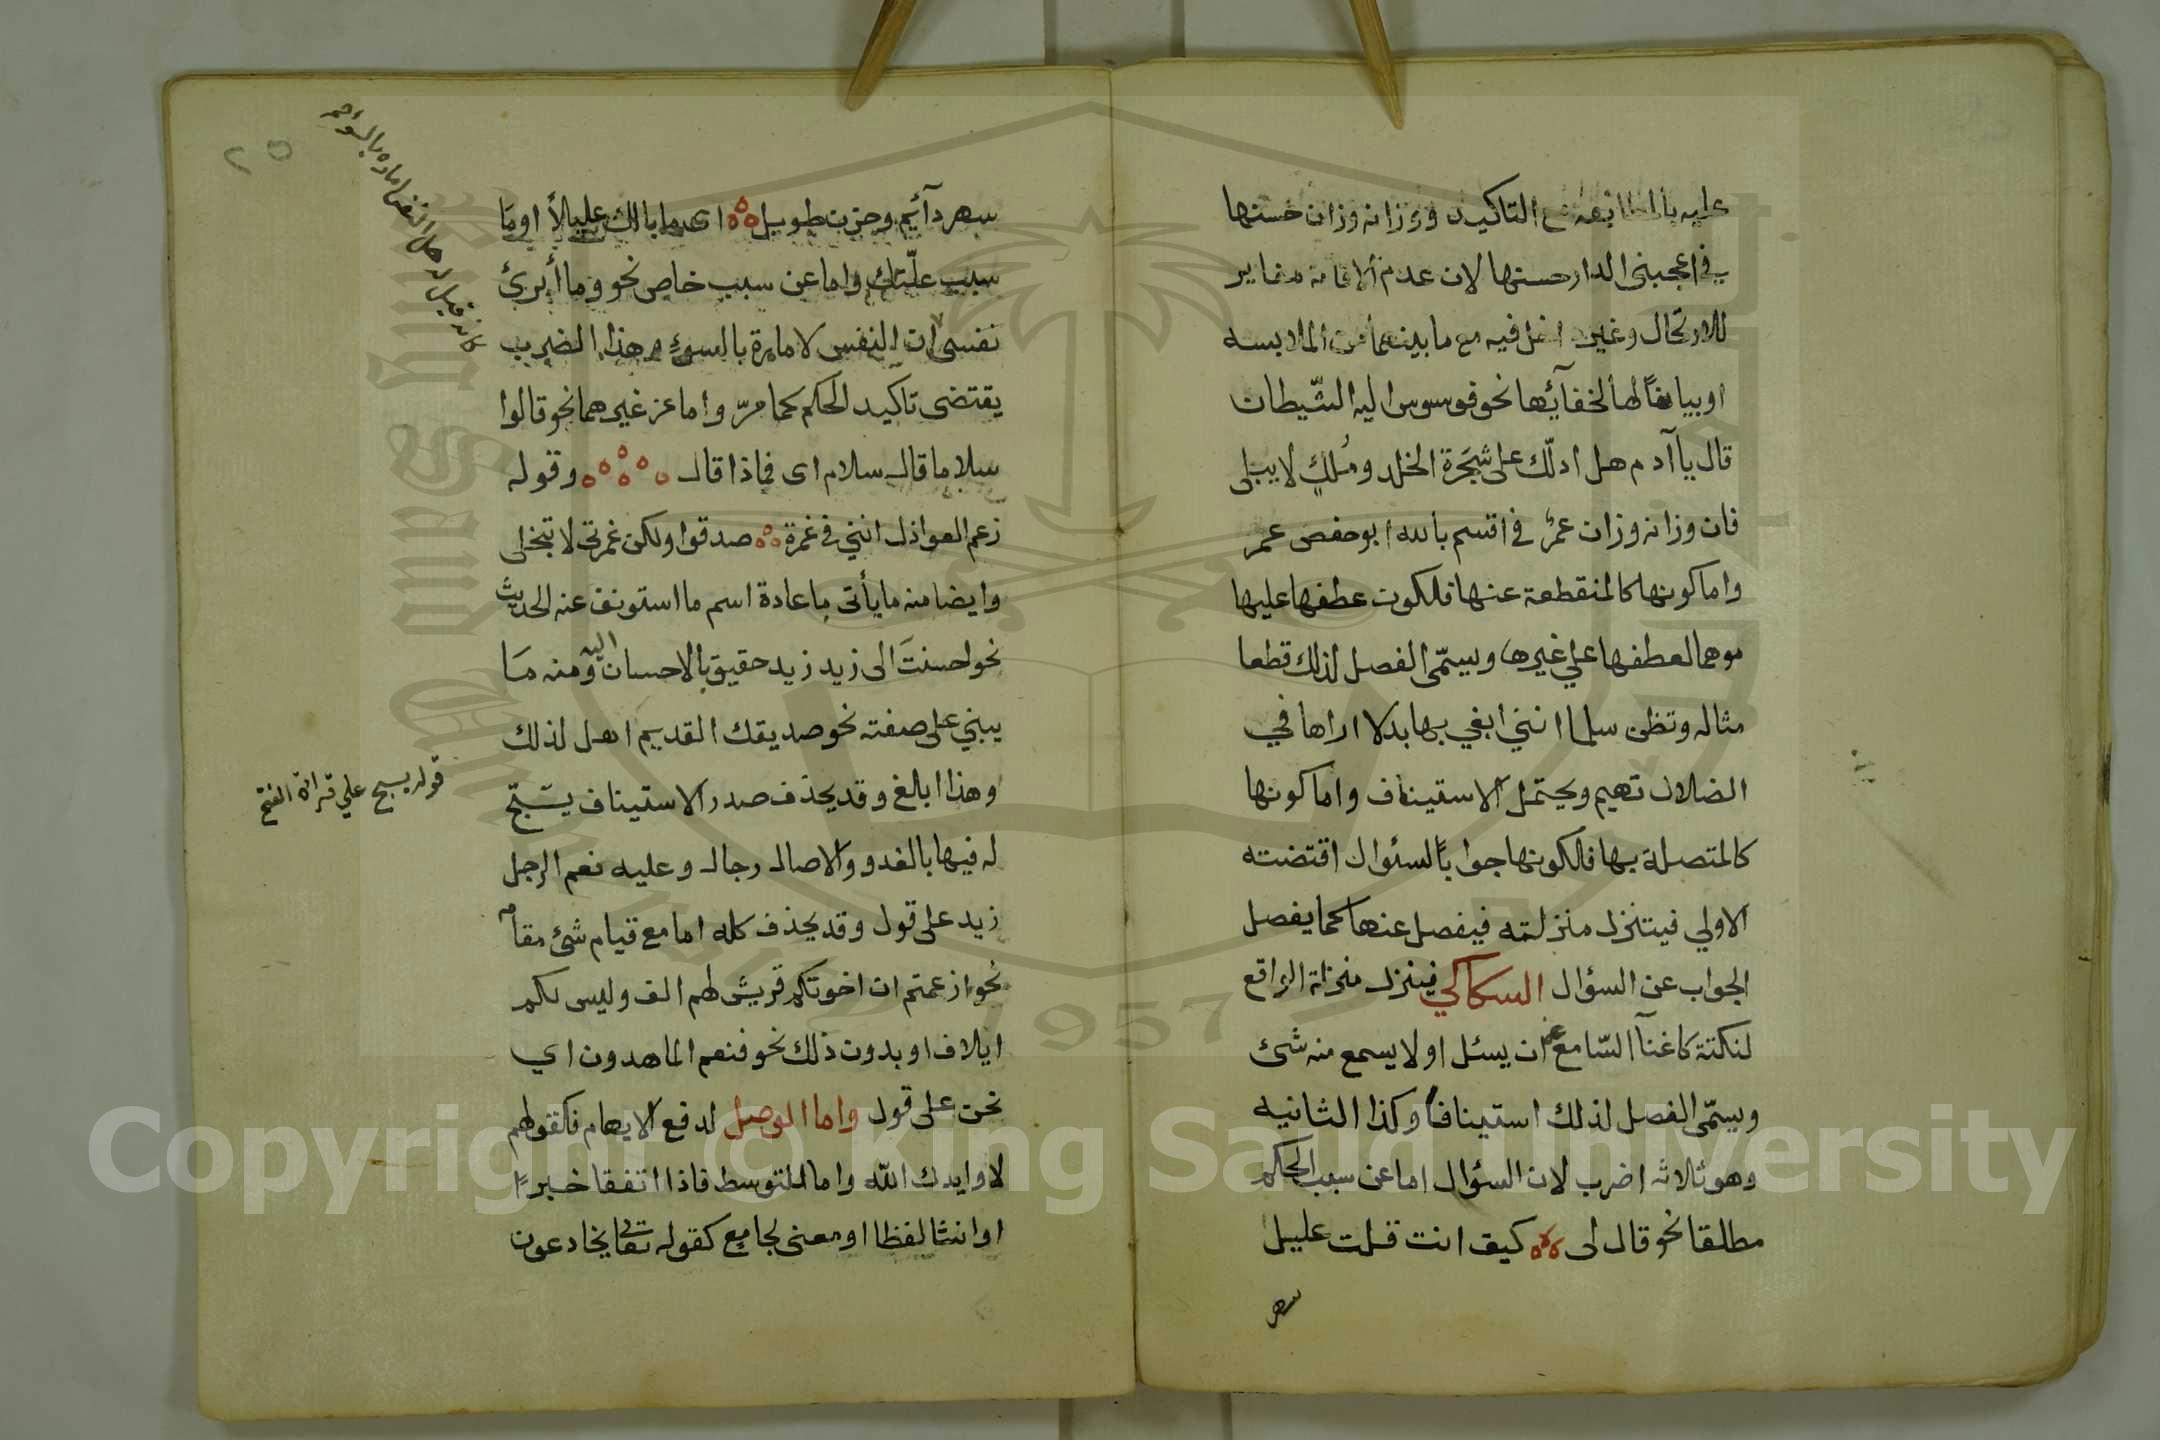 عليه بالمطابقة مع التاكيد ووزانه وزان حسنها
في اعجبنى الدار حسنها لان عدم الاقامة مغاير
للارتحال وغير داخل فيه مع ما بينهما من الملابسه
او بيانا لها لخفآئها نحو فوسوس اليه الشّيطان
قال يا آدم هل ادلّك على شجَرة الخلد ومُلكٍ لا يبلى
فان وزانه وزان عمرُ في اقسم بالله ابو حفص عمر
واما كونها كالمنقطعة عنها فلكون عطفها عليها
موهما لعطفها علي غيرها ويسمّى الفصل لذلك قطعا
مثاله وتظن سلما اننى ابغي بها بدلا اراها في
الضلال تهيم ويحتمل الاستيناف واما كونها
كالمتصلة بها فلكونها جوابًا لسئوال اقتضته
الاولي فيتنزل منزلته فيفصل عنها كما يفصل
الجواب عن السؤال السكاكي فينزل منزلة الواقع
لنكتة كاغنآ السّامع عن ان يسئل او لا يسمع منه شئ
ويسمّى الفصل لذلك استينافًا وكذا الثانيه
وهو ثلاثه اضرب لان السئوال اما عن سبب الحكم
مطلقا نحو قال لى كيف انت قلت عليل
سهر
٢٥
سهر دآئم وحزن طويل اى ما بالك عليلا او ما
سبب علّتك واما عن سبب خاص نحو وما أبرئ
نفسى ان النفس لامارة بالسوءِ وهذا الضرب
يقتضى تاكيد الحكم كما مرّ واما عن غيرهما نحو قالوا
سلاما قال سلام اى فماذا قال وقوله
زعم العواذل اننى في غمرة صدقوا ولكن غمرتى لا تنجلى
وايضا منه ما يأتى باعادة اسم ما استونف عنه الحديث
نحو احسنتَ الى زيد زيد حقيق بالاحسان اليه ومنه مَا
يبني على صفته نحو صديقك القديم اهل لذلك
وهذا ابلغ وقد يحذف صدر الاستيناف يسَبّح
له فيها بالغدو والاصال رجال وعليه نعم الرجل
زيد على قول وقد يحذف كله اما مع قيام شئ مقامه
نحو زعمتم ان اخوتكم قريش لهم الف وليس لكم
ايلاف او بدون ذلك نحو فنعم الماهدون اي
نحن على قول واما الوصل لدفع الايهام فكقولهم
لا وايدك اللّه واما للتوسط فاذا اتفقا خبرًا
او انشا لفظا او معنى بجامع كقوله تعالى يخادعون
قوله يسبح علي قرائة الفتح
Copyright © King Saud University
1957